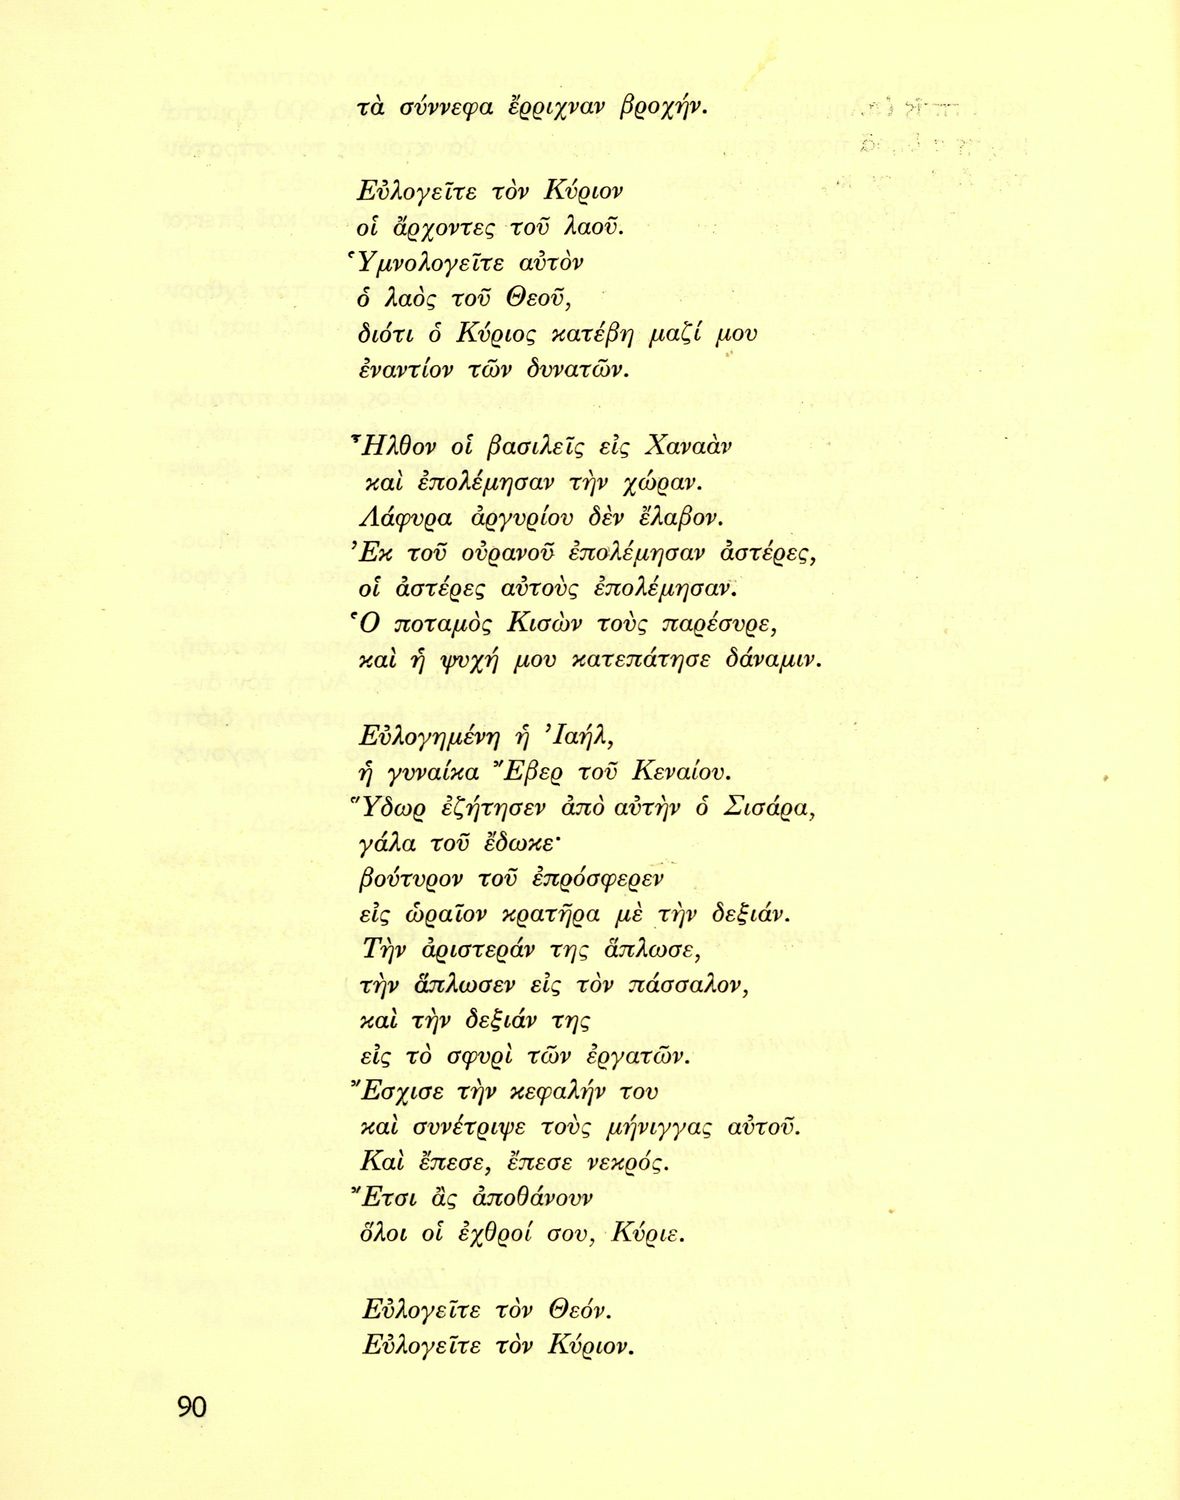 τὰ σύννεφα ἔρριχναν βροχήν.
Εὐλογεῖτε τὸν Κύριον
οἱ ἄρχοντες τοῦ λαοῦ.
Ὑμνολογεῖτε αὐτὸν
ὁ λαὸς τοῦ Θεοῦ,
διότι ὁ Κύριος κατέβη μαζί μου
ἐναντίον τῶν δυνατῶν.
Ἦλθον οἱ βασιλεῖς εἰς Χαναὰν
καὶ ἐπολέμησαν τὴν χώραν.
Λάφυρα ἀργυρίου δὲν ἔλαβον.
Ἐκ τοῦ οὐρανοῦ ἐπολέμησαν ἀστέρες,
οἱ ἀστέρες αὐτοὺς ἐπολέμησαν.
Ὁ ποταμὸς Κισὼν τοὺς παρέσυρε,
καὶ ἡ ψυχή μου κατεπάτησε δάναμιν.
Εὐλογημένη ἡ Ἰαήλ,
ἡ γυναίκα Ἔβερ τοῦ Κεναίου.
Ὕδωρ ἐζήτησεν ἀπὸ αὐτὴν ὁ Σισάρα,
γάλα τοῦ ἔδωκε·
βούτυρον τοῦ ἐπρόσφερεν
εἰς ὡραῖον κρατῆρα μὲ τὴν δεξιάν.
Τὴν ἀριστεράν της ἅπλωσε,
τὴν ἅπλωσεν εἰς τὸν πάσσαλον,
καὶ τὴν δεξιάν της
εἰς τὸ σφυρὶ τῶν ἐργατῶν.
Ἔσχισε τὴν κεφαλήν του
καὶ συνέτριψε τοὺς μήνιγγας αὐτοῦ.
Καὶ ἔπεσε, ἔπεσε νεκρός.
Ἔτσι ἂς ἀποθάνουν
ὅλοι οἱ ἐχθροί σου, Κύριε.
Εὐλογεῖτε τὸν Θεόν.
Εὐλογεῖτε τὸν Κύριον.
90